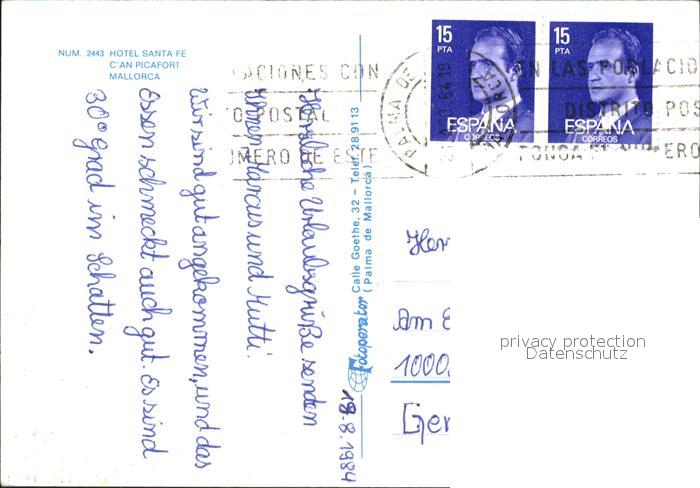 NUM. 2443 HOTEL SANTA FE
C'AN PICAFORT
MALLORCA
Herzliche Urlaubsgrüße senden
Ihnen Marcus und Mutti.
Wir sind gut angekommen, und das
Essen schmeckt auch gut. Es sind
30° grad im Schatten.
19.8.1984
Fotoperator Calle Goethe, 32 – Telef. 28 91 13
( Palma de Mallorca )
15
PTA
ESPAÑA
CORREOS
15
PTA
ESPAÑA
CORREOS
PALMA DE MALLORCA
84
ACIONES CON
O POSTAL
UMERO DE ESTE
EN LAS POBLACIO
DISTRITO POS
PONGA EL NUMERO
Her
Am
1000
Ger
privacy protection
Datenschutz